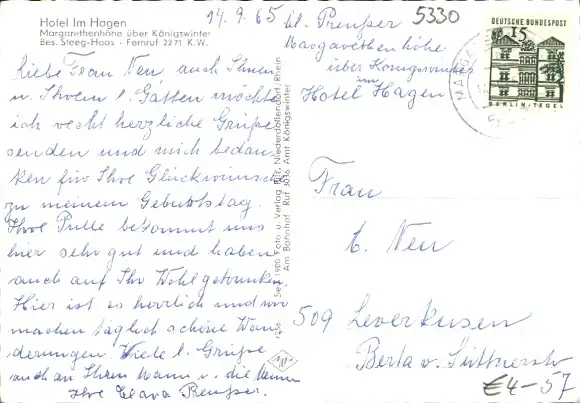 Hotel Im Hagen
Margarethenhöhe über Königswinter
Bes. Steeg-Haas - Fernruf 2271 K.W.
14.7.65 Preußer 5330
Margarethenhöhe
über Königswinter
im
Hotel Hagen
DEUTSCHE BUNDESPOST
15
BERLIN-TEGEL
Liebe Frau Neu, auch Ihnen
u. Ihrem l. Gatten möchte
ich recht herzliche Grüße
senden und mich bedan-
ken für Ihre Glückwünsche
zu meinem Geburtstag.
Ihre Pulle bekommt uns
hier sehr gut und haben
auch auf Ihr Wohl getrunken.
Hier ist es herrlich und wir
machen täglich schöne Wan-
derungen. Viele l. Grüße
auch an Ihren Mann u. die
Ihre Clara Preußer.
Foto u. Verlag Rilz, Niederdollendorf/Rhein
Am Bahnhof Ruf 3036 Amt Königswinter
Frau
Neu
509 Leverkusen
Berta v. Suttnerstr
57
€4-